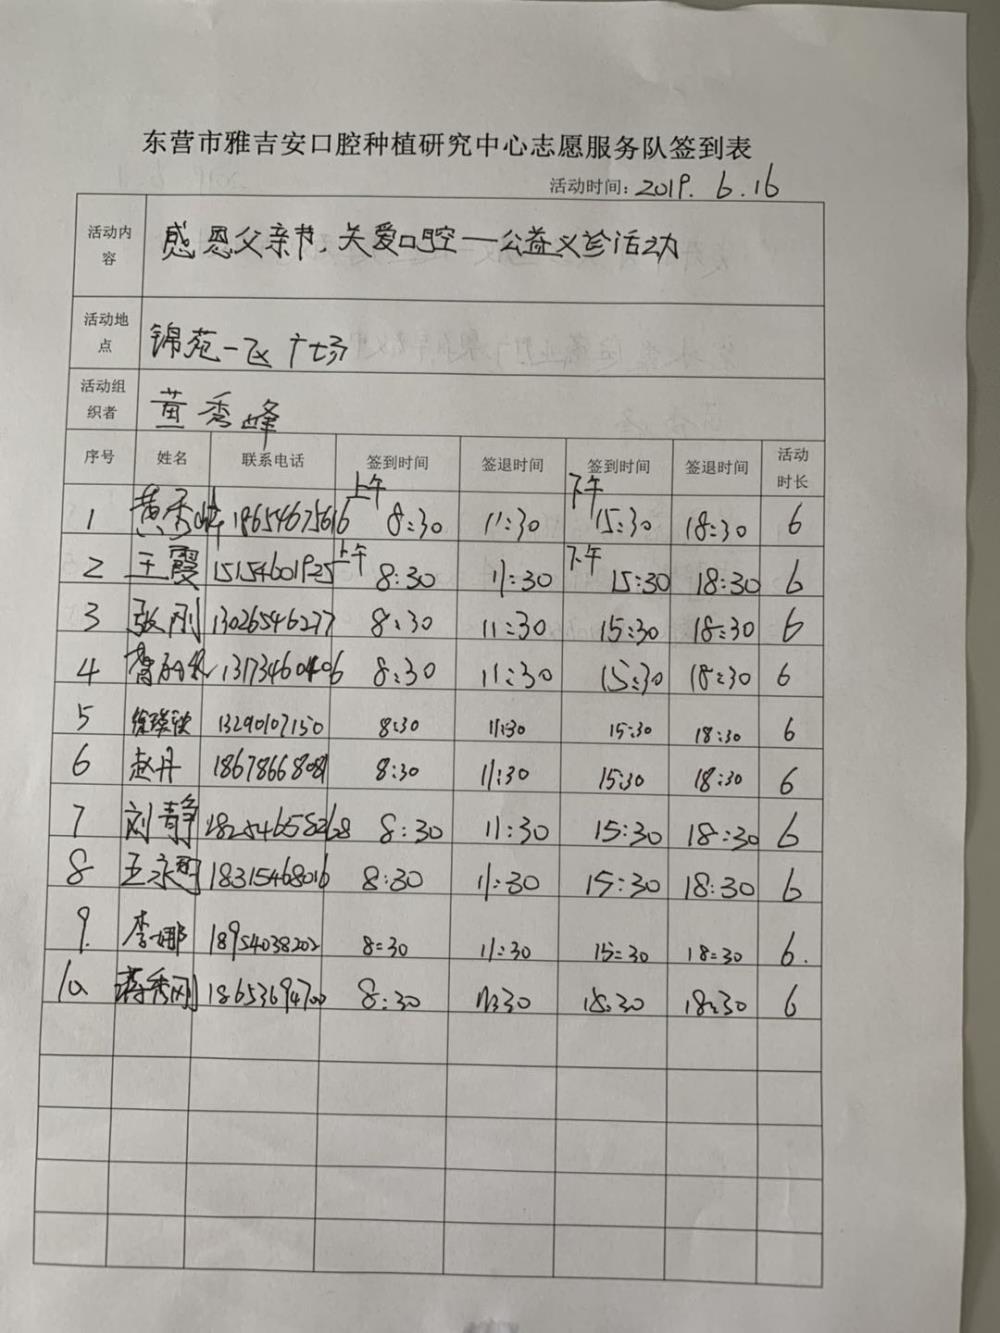 东营市雅吉安口腔种植研究中心志愿服务队签到表
活动时间：2019. 6.16
活动内容 感恩父亲节、关爱口腔一公益义诊活动
活动地点 锦苑一区广场
活动组织者 黄秀峰
序号 姓名 联系电话 签到时间 签退时间 签到时间 签退时间 活动时长
1 黄秀峰 18654675616 上午 8:30 11:30 下午 15:30 18:30 6
2 王霞 15154601925 上午 8:30 11:30 下午 15:30 18:30 6
3 张刚 13026546277 8:30 11:30 15:30 18:30 6
4 13173460406 8:30 11:30 15:30 18:30 6
5 13290107150 8:30 11:30 15:30 18:30 6
6 赵丹 8:30 11:30 15:30 18:30 6
7 刘静 8:30 11:30 15:30 18:30 6
8 18315468016 8:30 11:30 15:30 18:30 6
9. 李娜 18954038202 8:30 11:30 15:30 18:30 6.
10 蒋秀刚 18653694700 8:30 11:30 15:30 18:30 6